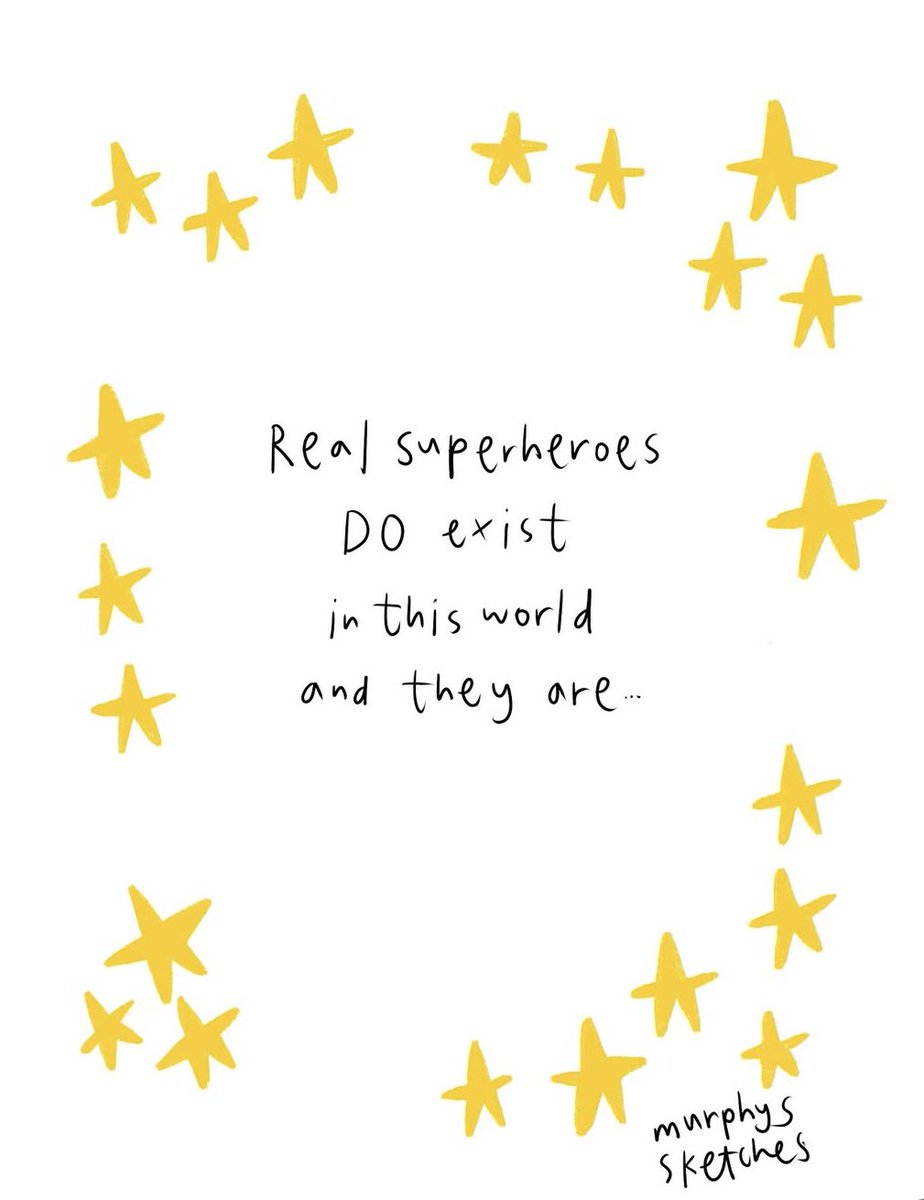 Real superheroes
DO exist
in this world
and they are...
murphys
sketches